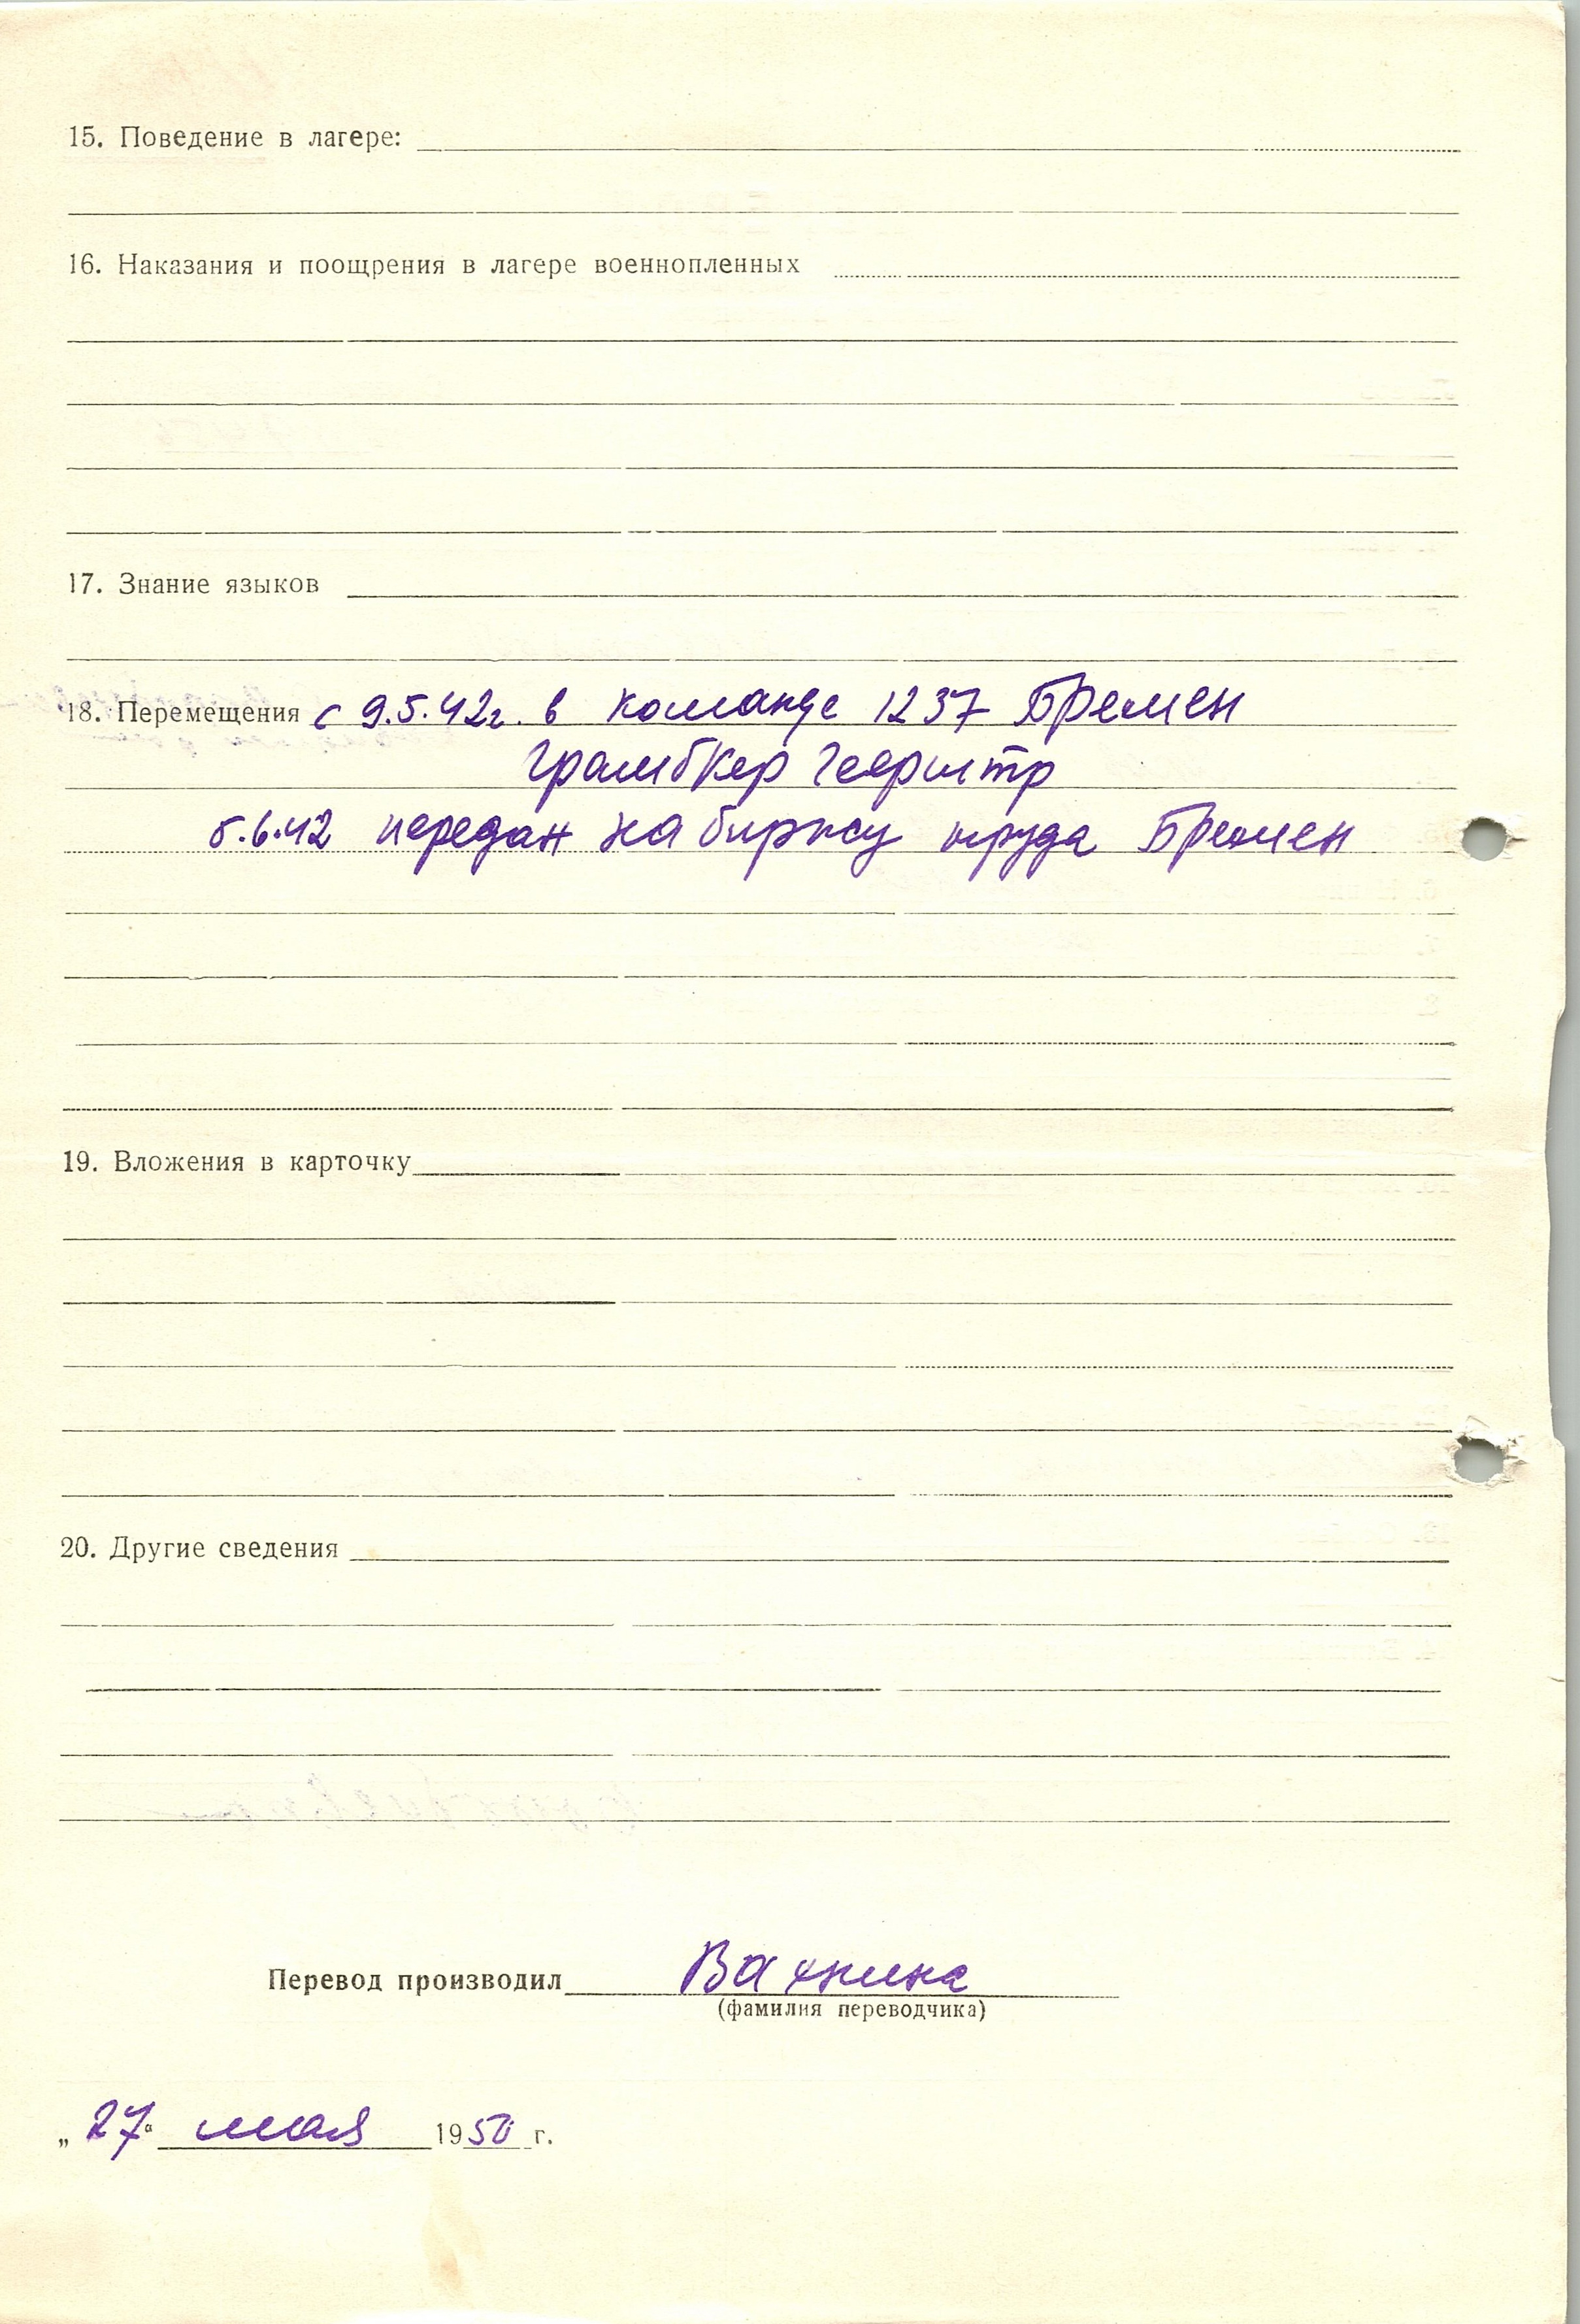 15. Поведение в лагере:
16. Наказания и поощрения в лагере военнопленных
17. Знание языков
18. Перемещения с 9.5.42г. в команде 1237 Бремен
Грамбкер Геерштр
5.6.42 передан на биржу труда Бремен
19. Вложения в карточку
20. Другие сведения
Перевод производил Вахнина
(фамилия переводчика)
„27“ мая 1950 г.